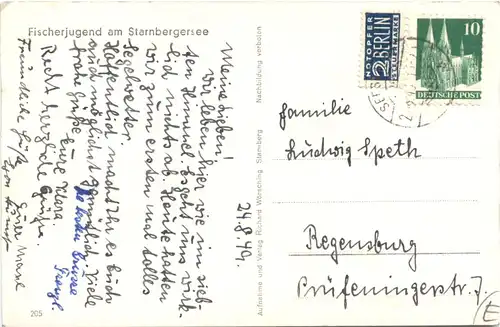 Fischerjugend am Starnbergersee
24.8.49.
Meine Lieben!
Wir leben hier wie im sieb-
ten Himmel. Es geht uns wirk-
lich nichts ab. Heute hatten
wir zum ersten mal tolles
Segelwetter.
Hoffentlich macht Ihr es Euch
auch möglichst gemütlich. Viele
frohe Grüße Eure
Recht herzliche Grüße
Euer
Freundliche Grüße
205
Aufnahme und Verlag Richard Wörsching, Starnberg
Nachbildung verboten
NOTOPFER
2 BERLIN
STEUERMARKE
10
DEUTSCHE POST
Familie
Ludwig Speth
Regensburg
Prüfeningerstr. 7
E